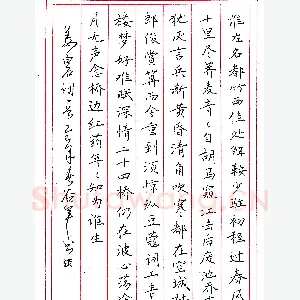 淮左名都竹西佳处解鞍少驻初程过春风
十里尽荠麦青々自胡马窥江去后废池乔
犹厌言兵渐黄昏清角吹寒都在空城杜
郎俊赏算而今重到须惊纵豆蔻词工青
楼梦好难赋深情二十四桥仍在波心荡冷
月无声念桥边红药年々知为谁生
姜夔词一首